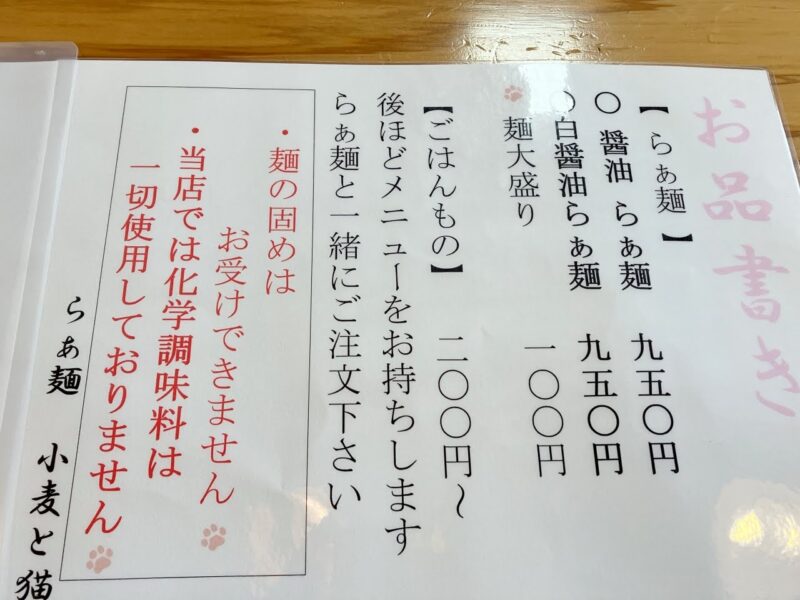 お品書き
【らぁ麺】
〇 醤油 らぁ麺 九五〇円
〇白醤油らぁ麺 九五〇円
麺大盛り 一〇〇円
【ごはんもの】 二〇〇円~
後ほどメニューをお持ちします
らぁ麺と一緒にご注文下さい
・麺の固めは
お受けできません
・当店では化学調味料は
一切使用しておりません
らぁ麺 小麦と猫